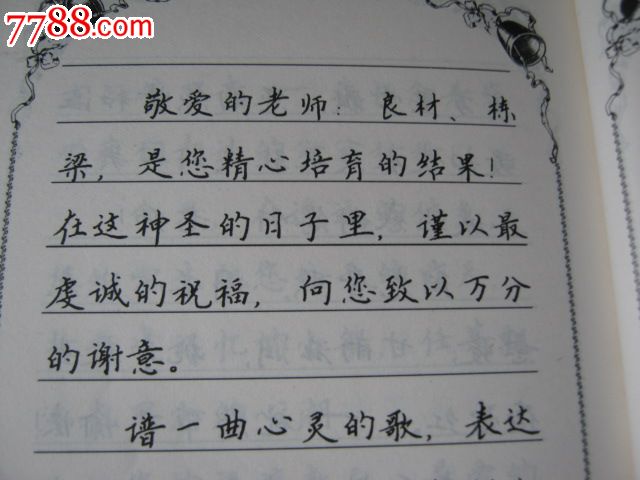 7788.com
敬爱的老师：良材、栋
梁，是您精心培育的结果！
在这神圣的日子里，谨以最
虔诚的祝福，向您致以万分
的谢意。
谱一曲心灵的歌，表达